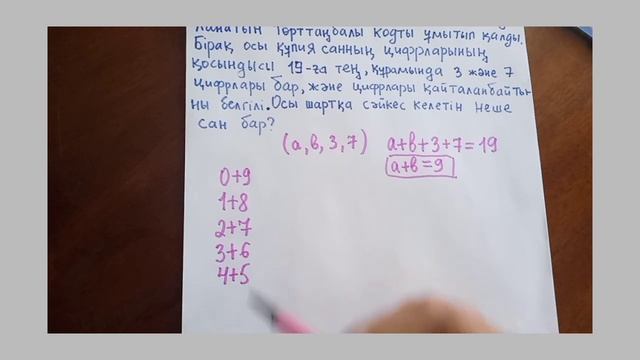 төрттаңбалы кодты ұмытып қалды.
Бірақ осы құпия санның цифрларының
қосындысы 19-ға тең, құрамында 3 және 7
цифрлары бар, және цифрлары қайталанбайтын
ны белгілі. Осы шартқа сәйкес келетін неше
сан бар?
(a, b, 3, 7) a+b+3+7=19
a+b=9
0+9
1+8
2+7
3+6
4+5